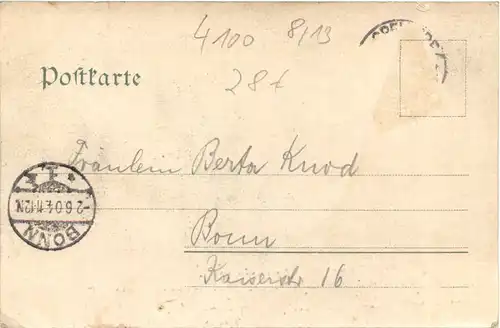 4100 8/13
28t
Postkarte
Fräulein Berta Knod
Bonn
Kaiserstr 16
BONN
-2.6.04.11-12N.